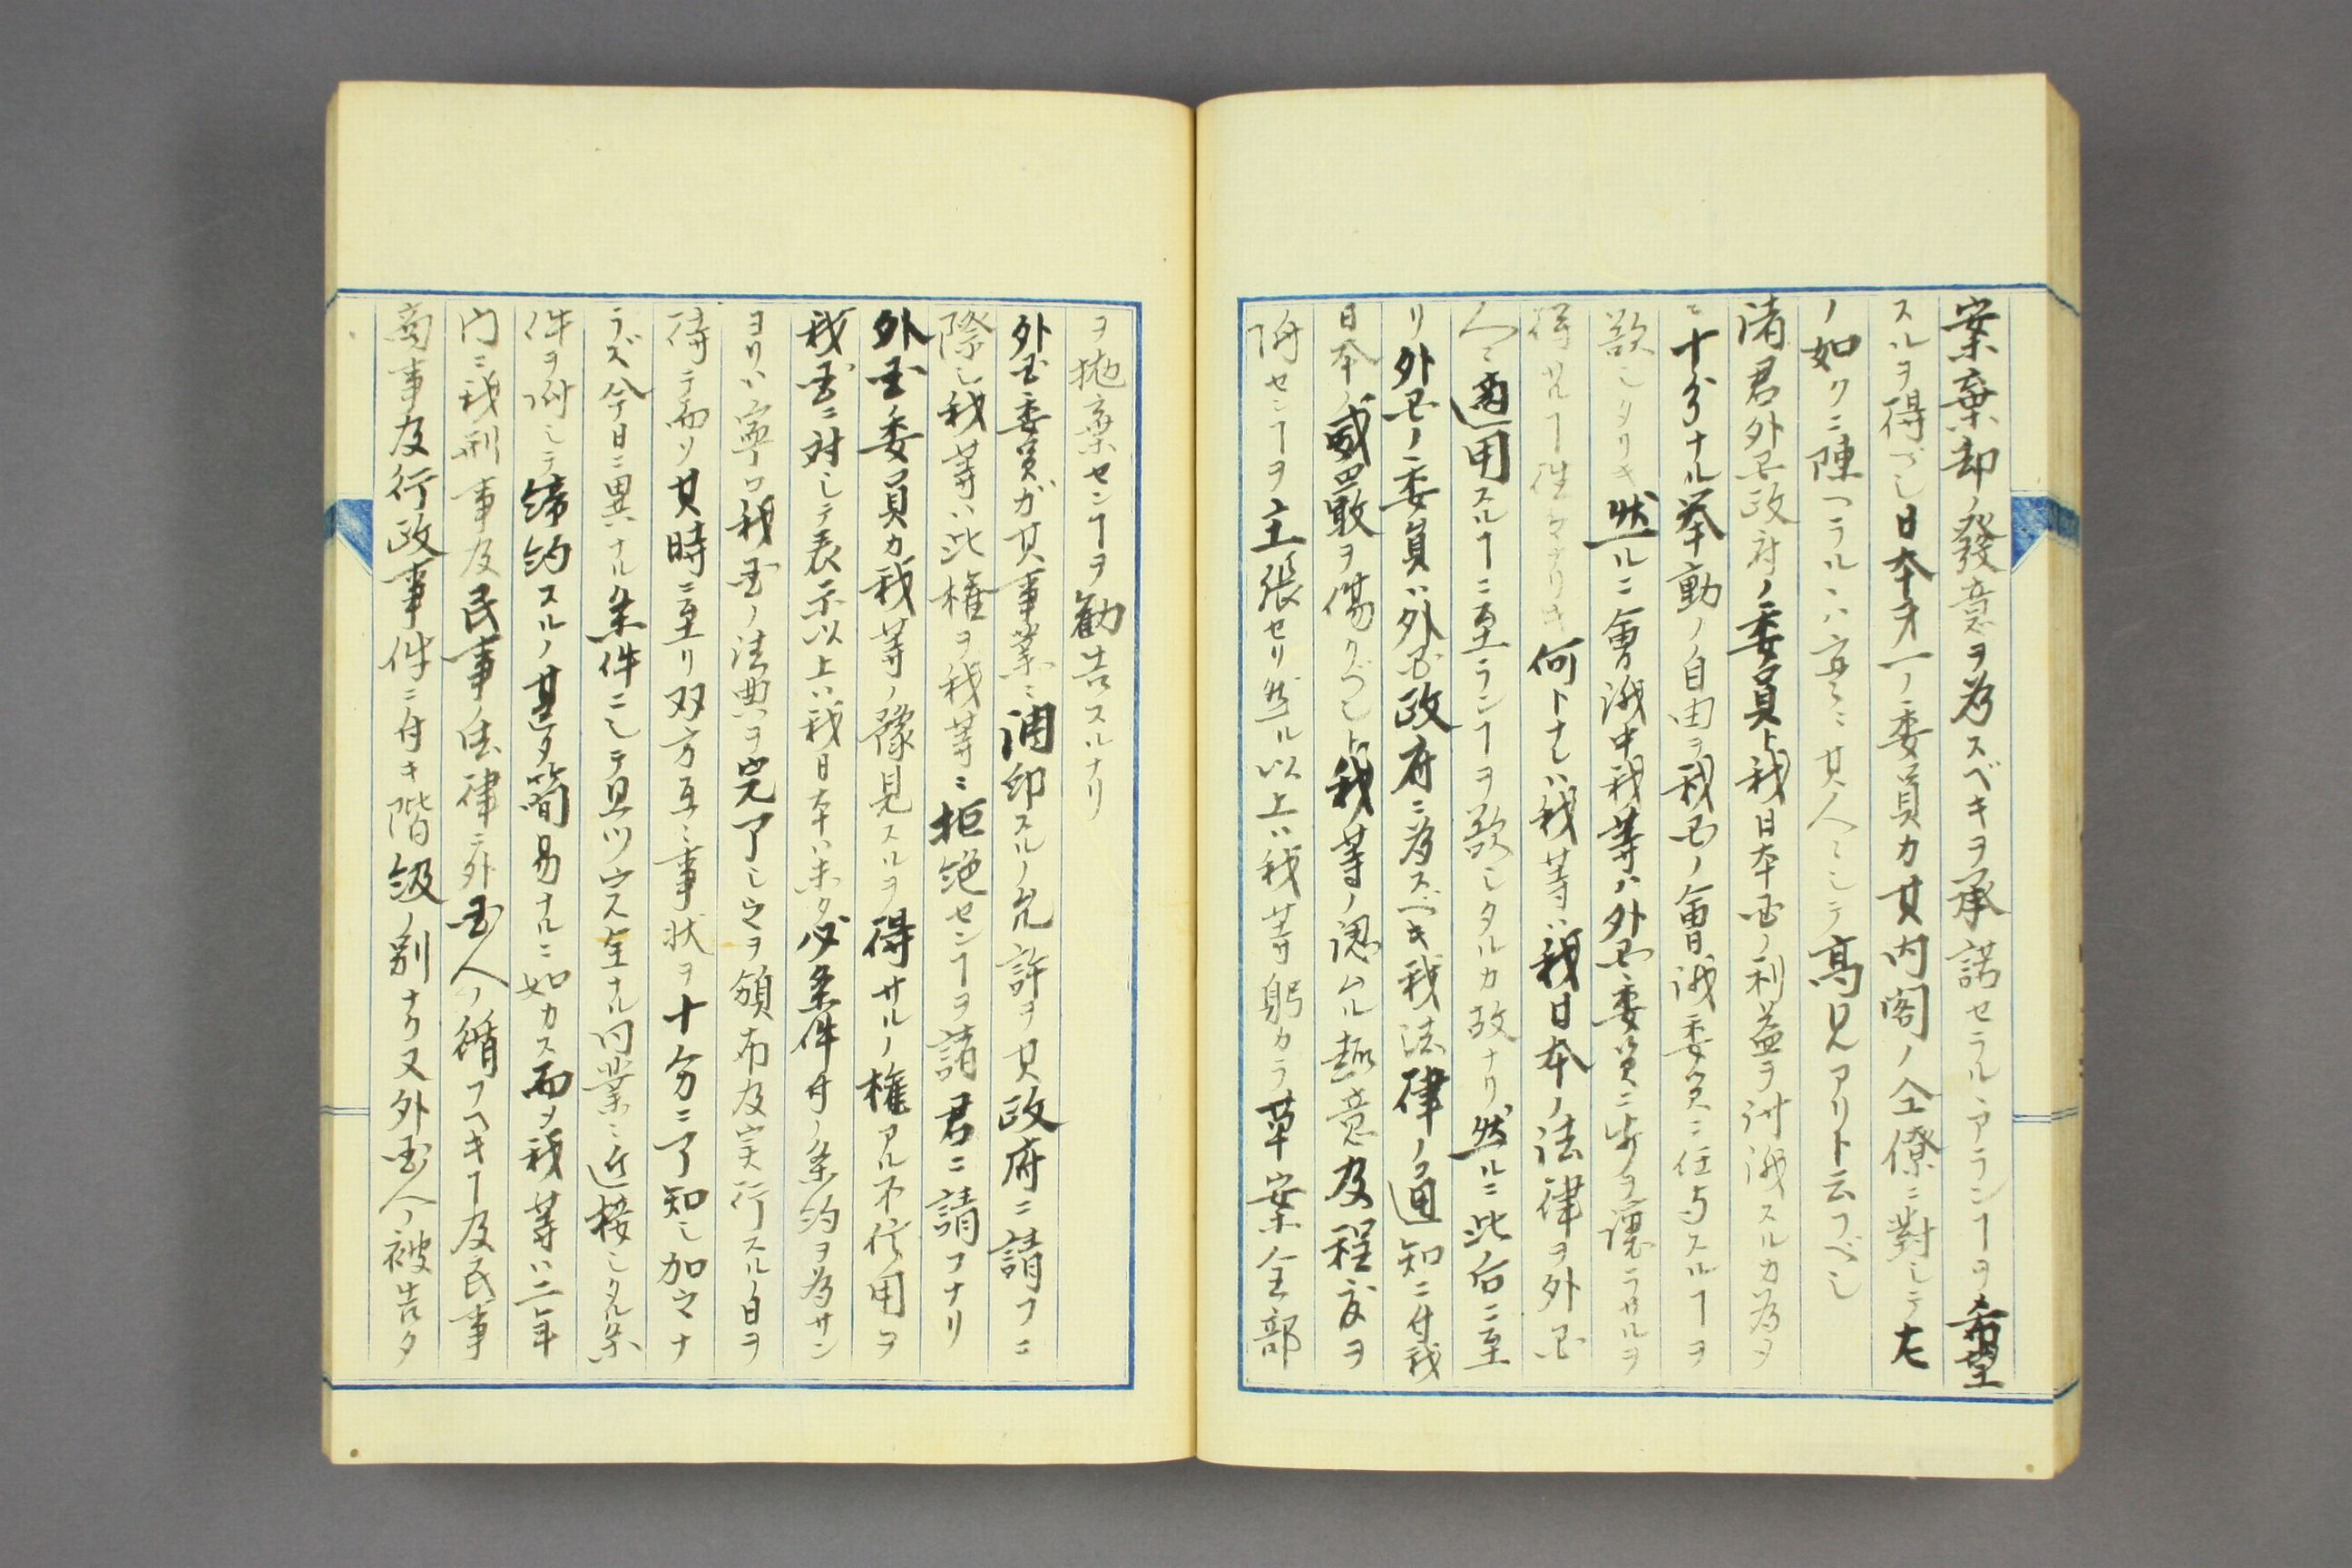 案棄却ノ發意ヲ為スベキヲ承諾セラルヽアランヿヲ希望
スルヲ得ベシ日本才一ノ委員カ其内閣ノ仝僚ニ對シテ左
ノ如クニ陳ヘラルヽハ實ニ其人ニシテ高見アリト云フベシ
諸君外国政府ノ委員ト我日本国ノ利益ヲ討議スルカ為メ
ニ十分ナル挙動ノ自由ヲ我国ノ會議委員ニ任与スルヿヲ
欲シタリキ然ルニ會議中我等ハ外国委員ニ歩ヲ譲ラサルヲ
得サルヿ往々ナリキ何トナレハ我等ハ我日本ノ法律ヲ外国
人ニ適用スルヿニ至ランヿヲ欲シタルカ故ナリ然ルニ此后ニ至
リ外国ノ委員ハ外国政府ニ為スベキ我法律ノ通知ニ付我
日本ノ威嚴ヲ傷クベシト我等ノ認ムル趣意及程度ヲ
陏セシヿヲ主張セリ然ル以上ハ我等躬カラ草案全部
ヲ抛棄センヿヲ勧告スルナリ
外国委員ガ其事業ニ調印スルノ允許ヲ其政府ニ請フニ
際シ我等ハ此権ヲ我等ニ拒絶センヿヲ諸君ニ請フナリ
外国ノ委員カ我等ノ豫見スルヲ得サルノ権アル不信用ヲ
我国ニ対シテ表示以上ハ我日本ハ未タ必条件付ノ条約ヲ為サン
ヨリハ寧ロ我国ノ法典ヲ完了シ之ヲ頒布及実行スルノ日ヲ
待テ而ソ其時ニ至リ双方互ニ事状ヲ十分ニ了知シ加之ナ
ラズ今日ニ異ナル条件ニシテ且ツ安全ナル同業ニ近接シタル条
件ヲ附シテ締約スルノ甚タ簡易ナルニ如カス而ソ我等ハ二年
内ニ我刑事及民事ノ法律ニ外国人ノ循フヘキヿ及民事
商事及行政事件ニ付キ階級ノ別ナク又外国人ノ被告タ